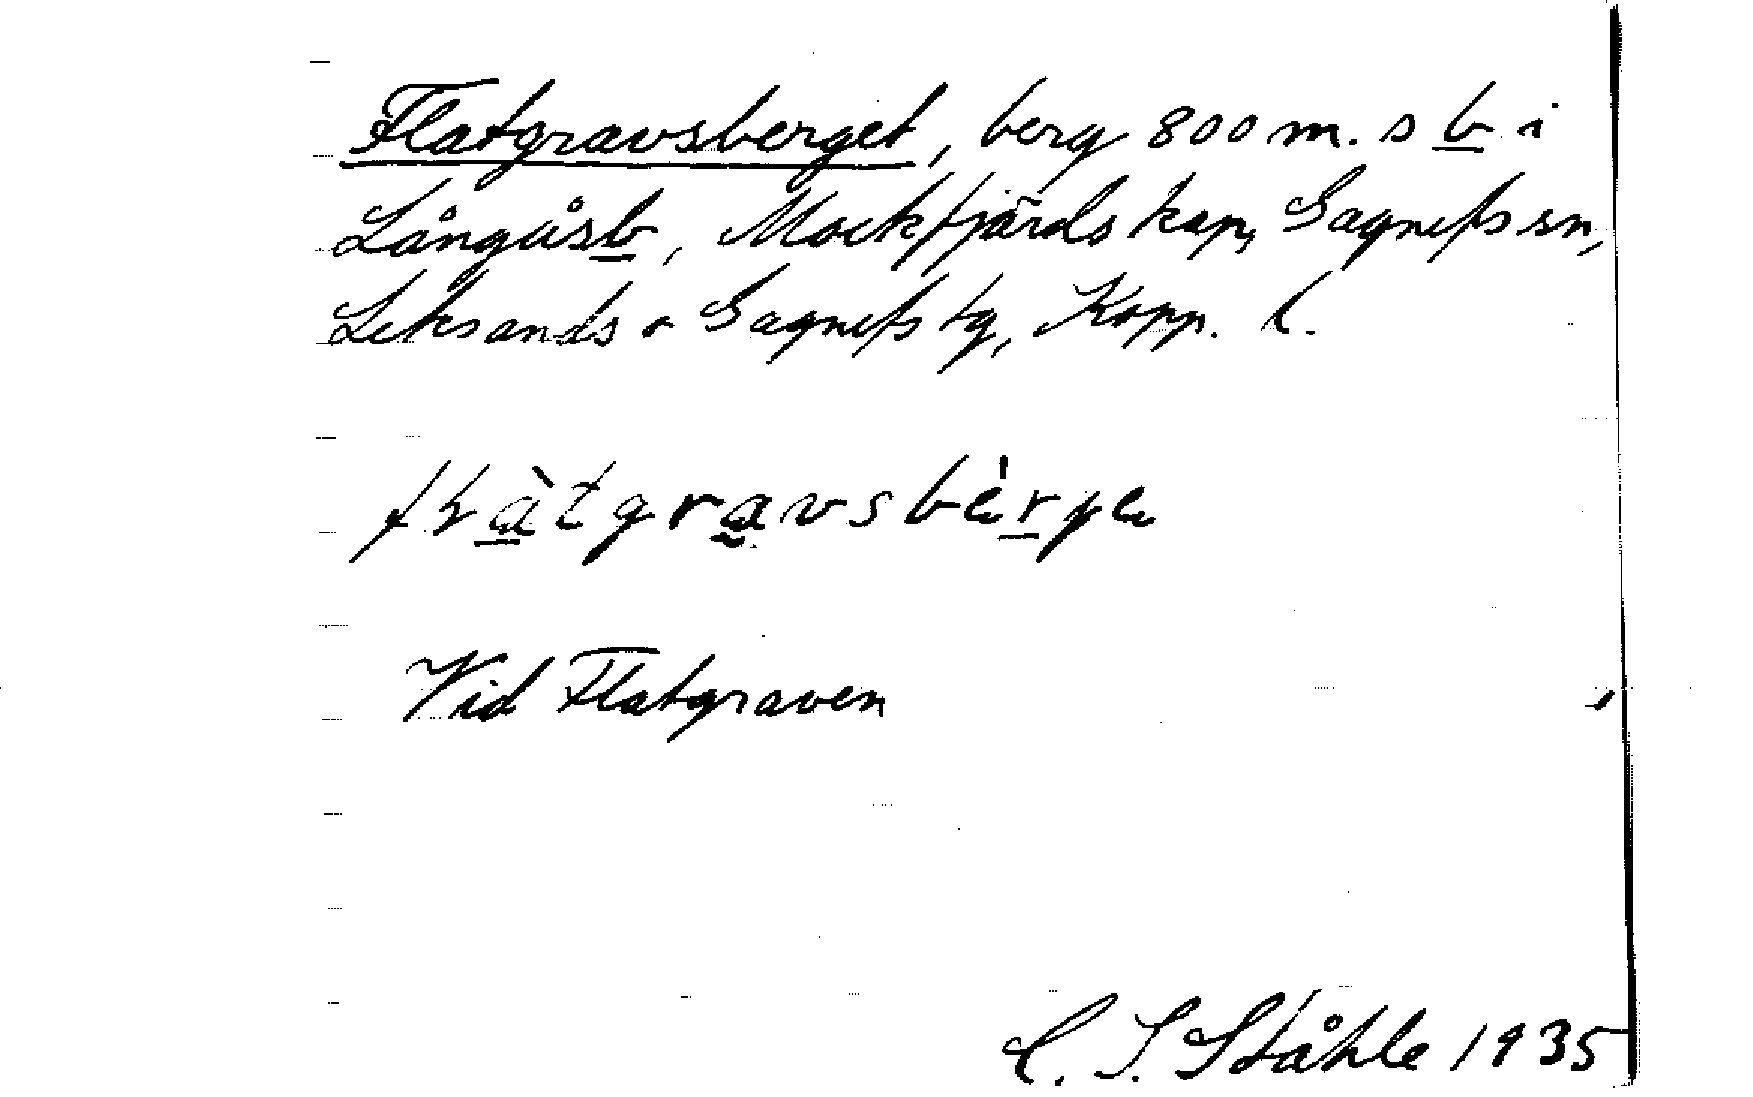 Flatgravsberget, berg 800 m. s b i
Långåsb, Mockfjärds kap, Gagnefs sn,
Leksands o Gagnefs tg, Kopp. l.
Vid Flatgraven
C. I. Ståhle 1935